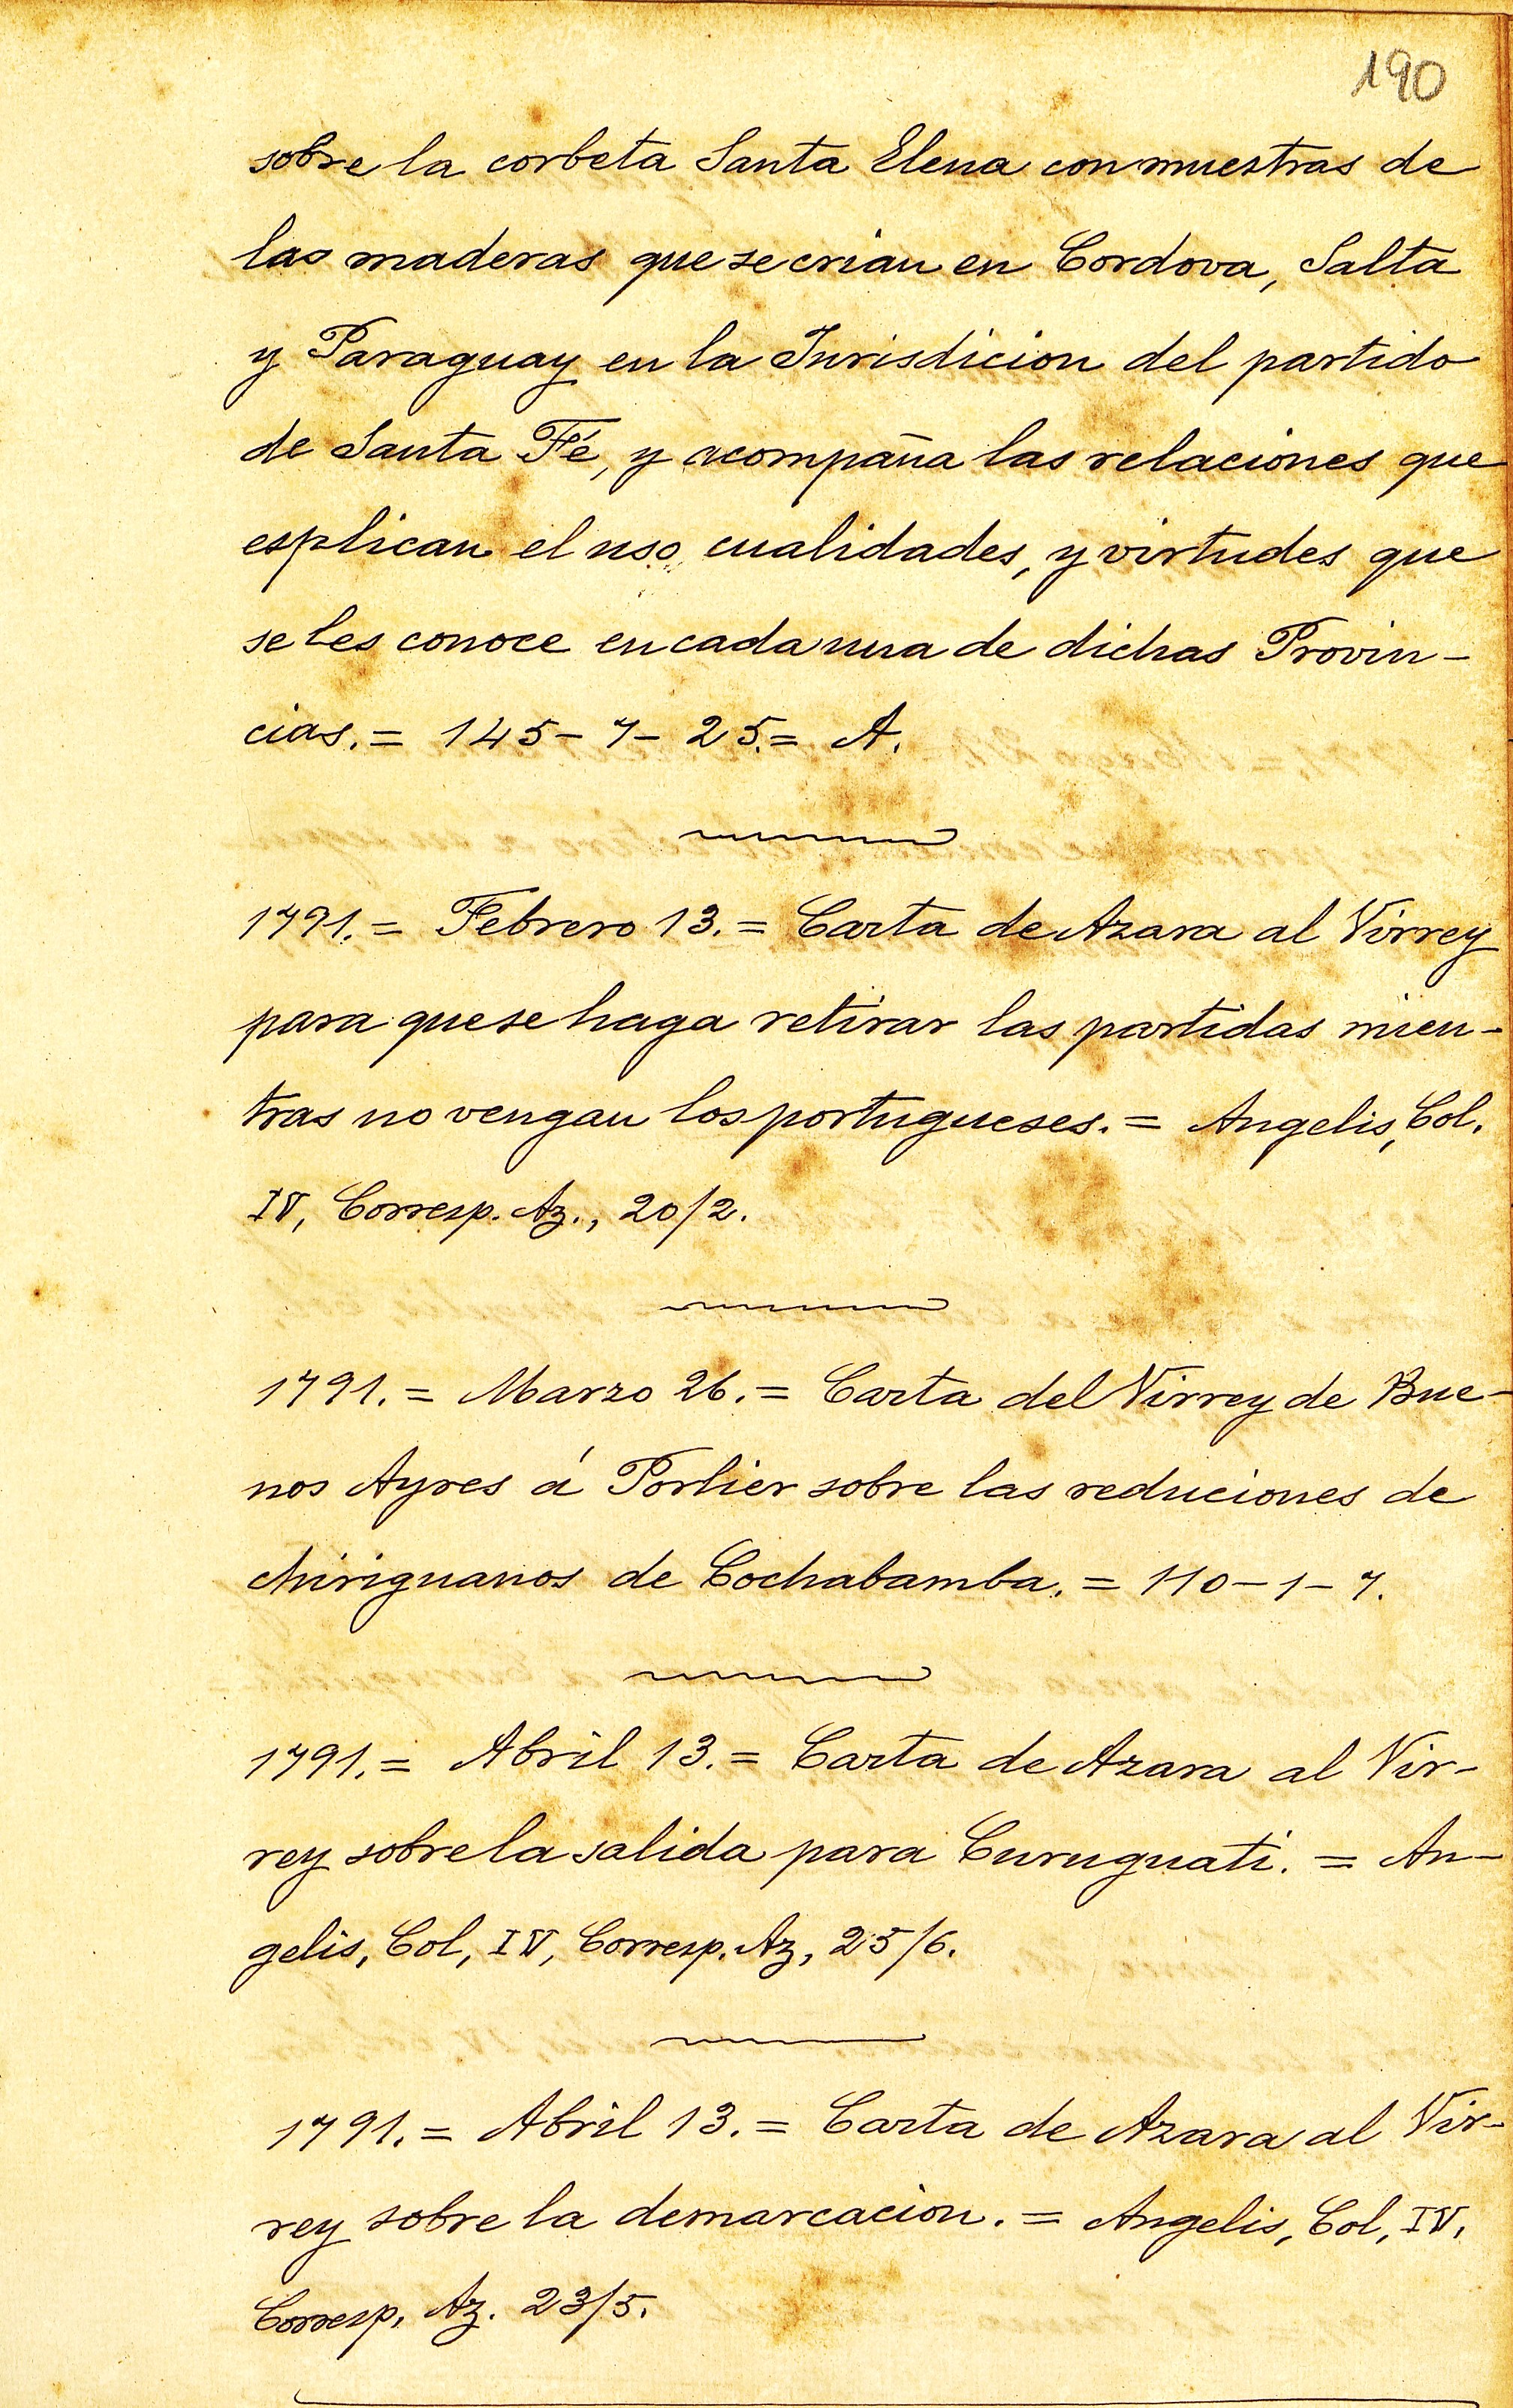 190
sobre la corbeta Santa Elena con muestras de
las maderas que se crian en Cordova, Salta
y Paraguay en la Jurisdicion del partido
de Santa Fé, y acompaña las relaciones que
esplican el uso cualidades, y virtudes que
se les conoce en cada una de dichas Provin-
cias. = 145 - 7 - 25. = A.
1791. = Febrero 13. = Carta de Azara al Virrey
para que se haga retirar las partidas mien-
tras no vengan los portugueses. = Angelis, Col.
IV, Corresp. Az., 20/2.
1791. = Marzo 26. = Carta del Virrey de Bue-
nos Ayres á Porlier sobre las reduciones de
chiriguanos de Cochabamba. = 110 - 1 - 7.
1791. = Abril 13. = Carta de Azara al Vir-
rey sobre la salida para Curuguati. = An-
gelis, Col, IV, Corresp. Az, 25/6.
1791. = Abril 13. = Carta de Azara al Vir-
rey sobre la demarcacion. = Angelis, Col, IV,
Corresp, Az. 23/5.